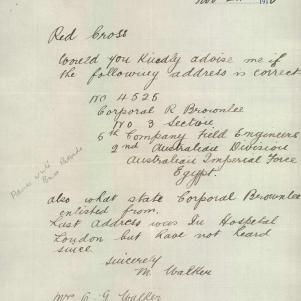 Red Cross
Would you Kindly advise me if
the following address is correct
No 4525
Corporal R Brownlee
No 3 Section
5th Company Field Engineers
2nd Australian Division
Australian Imperial Force
Egypt.
also what state Corporal Brownlee
enlisted from.
Last Address was In Hospital
London but have not heard
since
Sincerely
M. Walker
Mrs G Walker